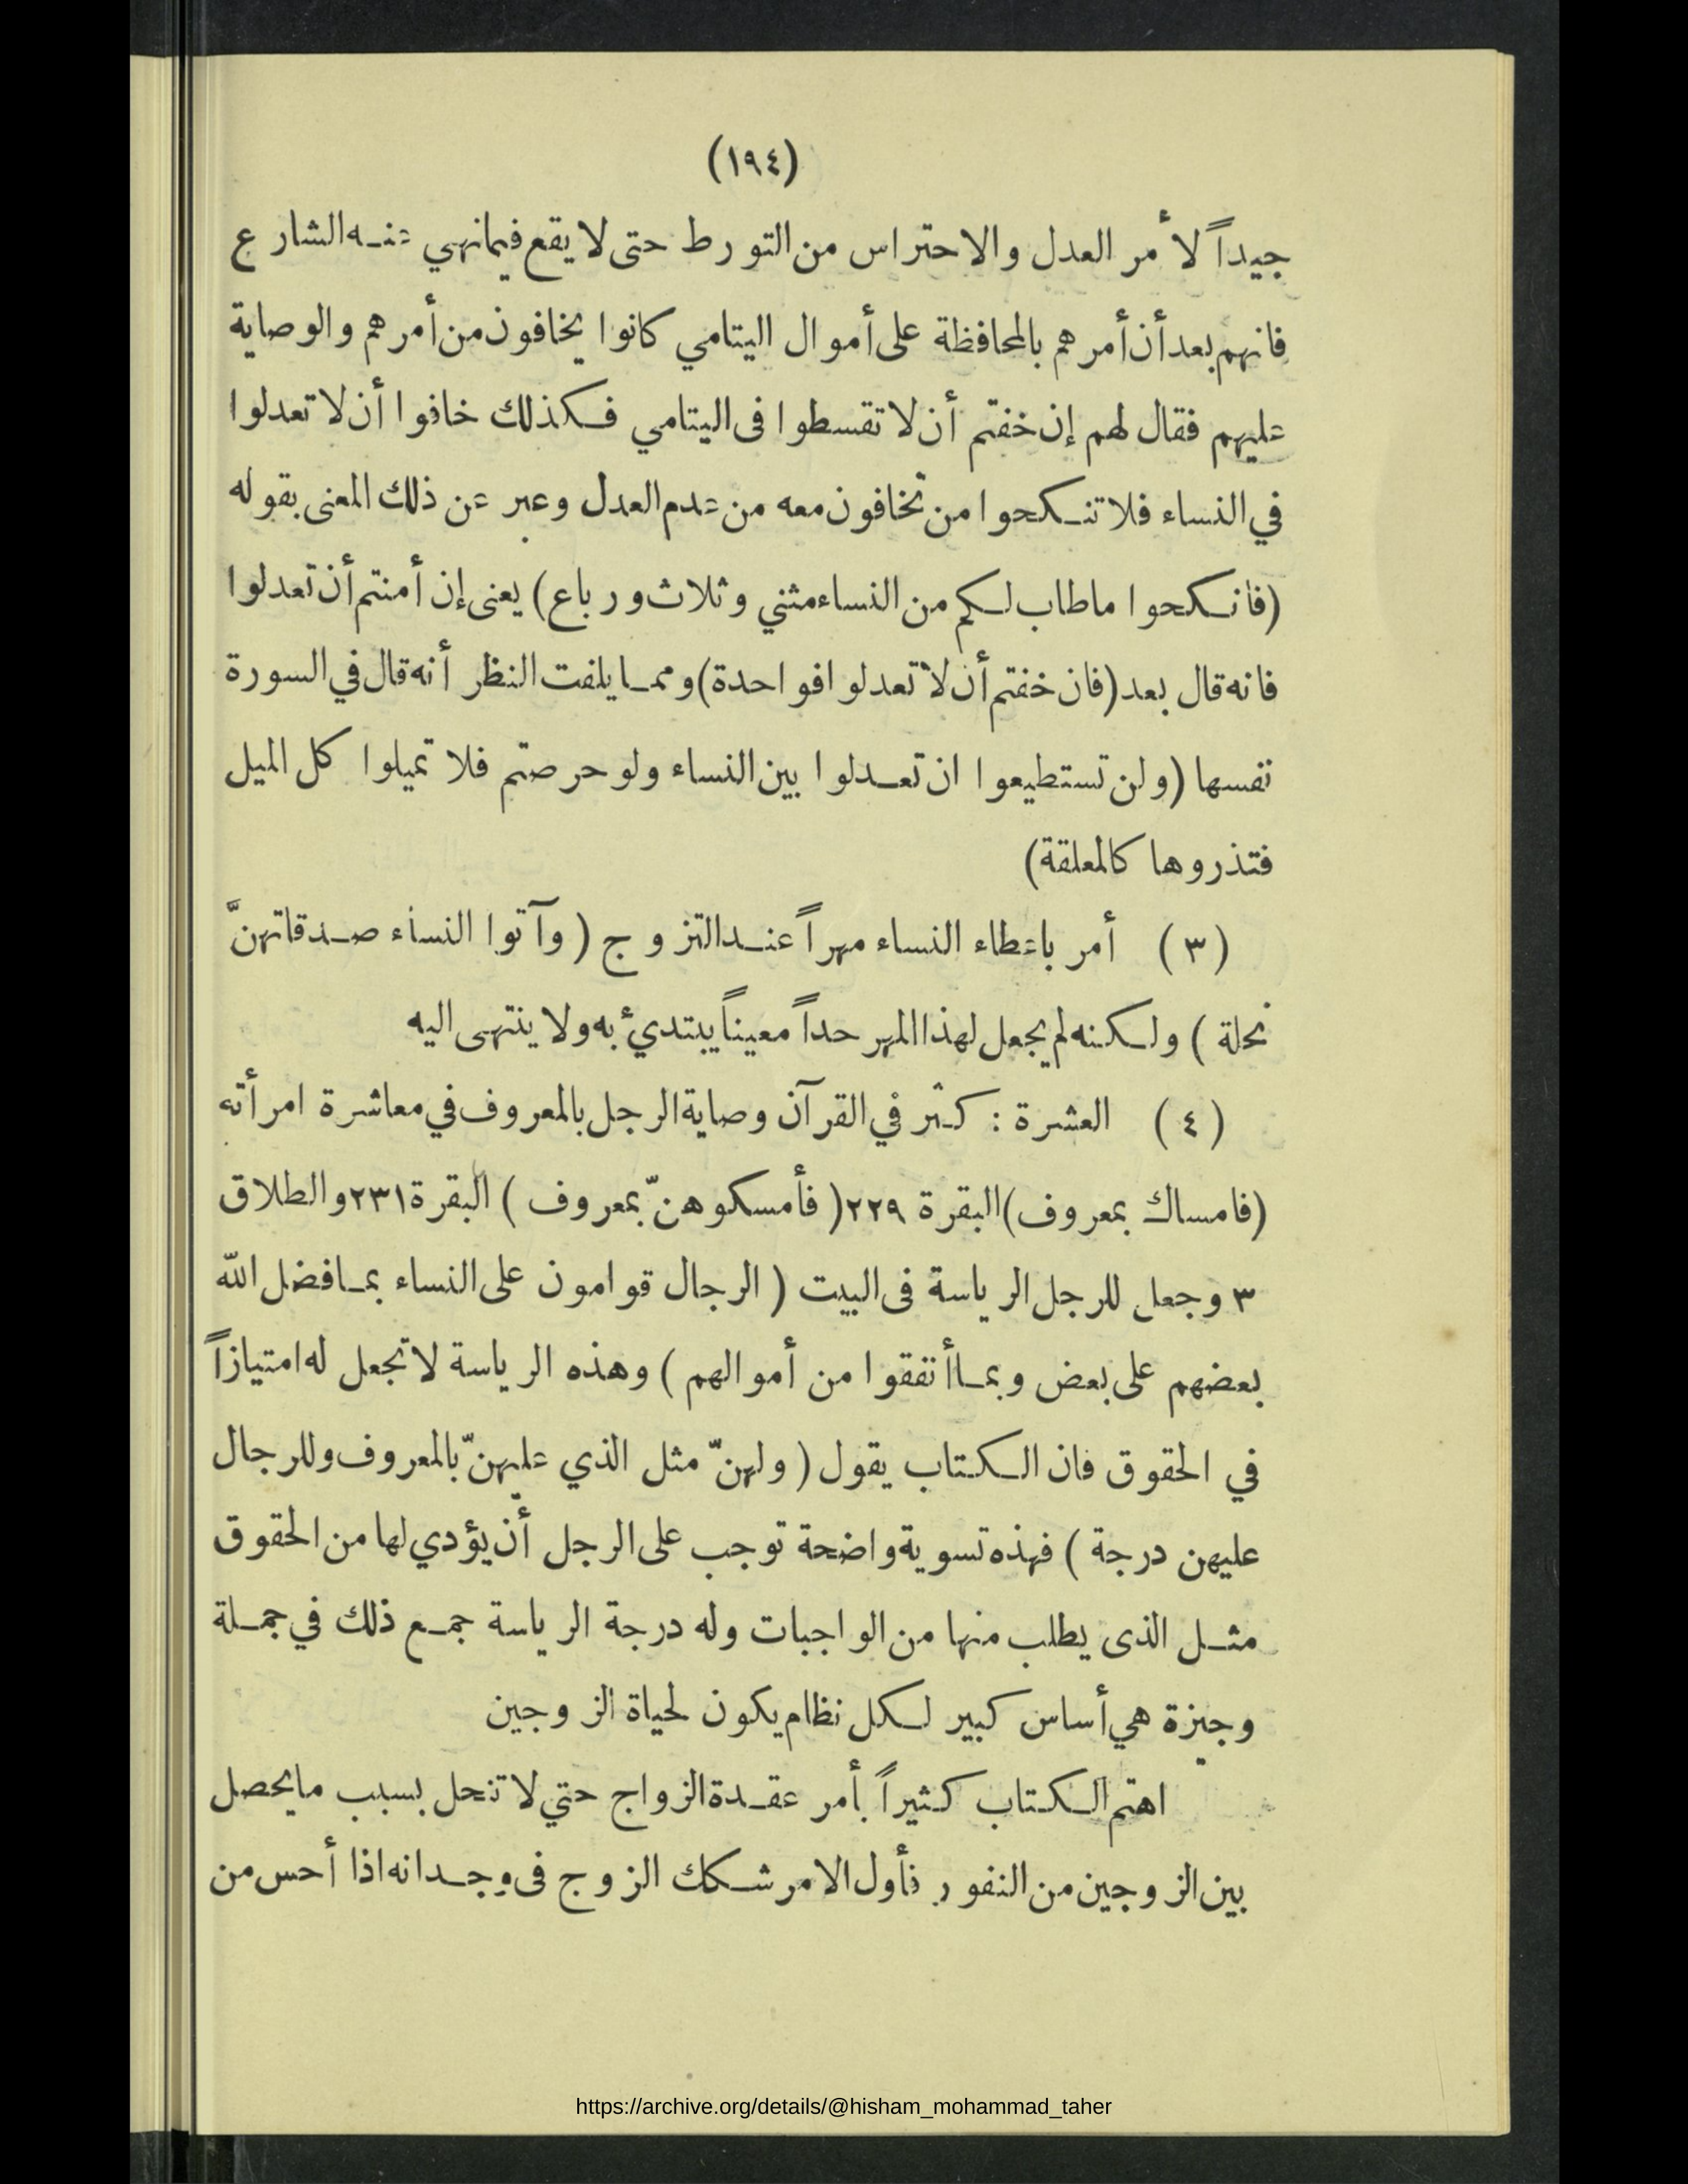 (١٩٤)
جيداً لأمر العدل والاحتراس من التورط حتى لا يقع فيما نهي عنه الشارع
فانهم بعد أن أمرهم بالمحافظة على أموال اليتامي كانوا يخافون من أمرهم والوصاية
عليهم فقال لهم إن خفتم أن لا تقسطوا فى اليتامي فكذلك خافوا أن لا تعدلوا
في النساء فلا تنكحوا من تخافون معه من عدم العدل وعبر عن ذلك المعنى بقوله
(فانكحوا ما طاب لكم من النساء مثني وثلاث ورباع) يعنى إن أمنتم أن تعدلوا
فانه قال بعد (فان خفتم أن لا تعدلوا فواحدة) ومما يلفت النظر أنه قال في السورة
نفسها (ولن تستطيعوا ان تعدلوا بين النساء ولو حرصتم فلا تميلوا كل الميل
فتذروها كالمعلقة)
(٣) أمر باعطاء النساء مهراً عند التزوج (وآتوا النساء صدقاتهنَّ
نحلة) ولكنه لم يجعل لهذا المهر حداً معيناً يبتديء به ولا ينتهى اليه
(٤) العشرة : كثر في القرآن وصاية الرجل بالمعروف في معاشرة امرأته
(فامساك بمعروف) البقرة ٢٢٩ (فأمسكوهنّ بمعروف) البقرة ٢٣١ والطلاق
٣ وجعل للرجل الرياسة فى البيت (الرجال قوامون على النساء بما فضل الله
بعضهم على بعض وبما أنفقوا من أموالهم) وهذه الرياسة لا تجعل له امتيازاً
في الحقوق فان الكتاب يقول (ولهنّ مثل الذي عليهنّ بالمعروف وللرجال
عليهن درجة) فهذه تسوية واضحة توجب على الرجل أن يؤدي لها من الحقوق
مثل الذى يطلب منها من الواجبات وله درجة الرياسة جمع ذلك في جملة
وجيزة هي أساس كبير لكل نظام يكون لحياة الزوجين
اهتم الكتاب كثيراً بأمر عقدة الزواج حتي لا تنحل بسبب ما يحصل
بين الزوجين من النفور فأول الامر شكك الزوج فى وجدانه اذا أحس من
https://archive.org/details/@hisham_mohammad_taher